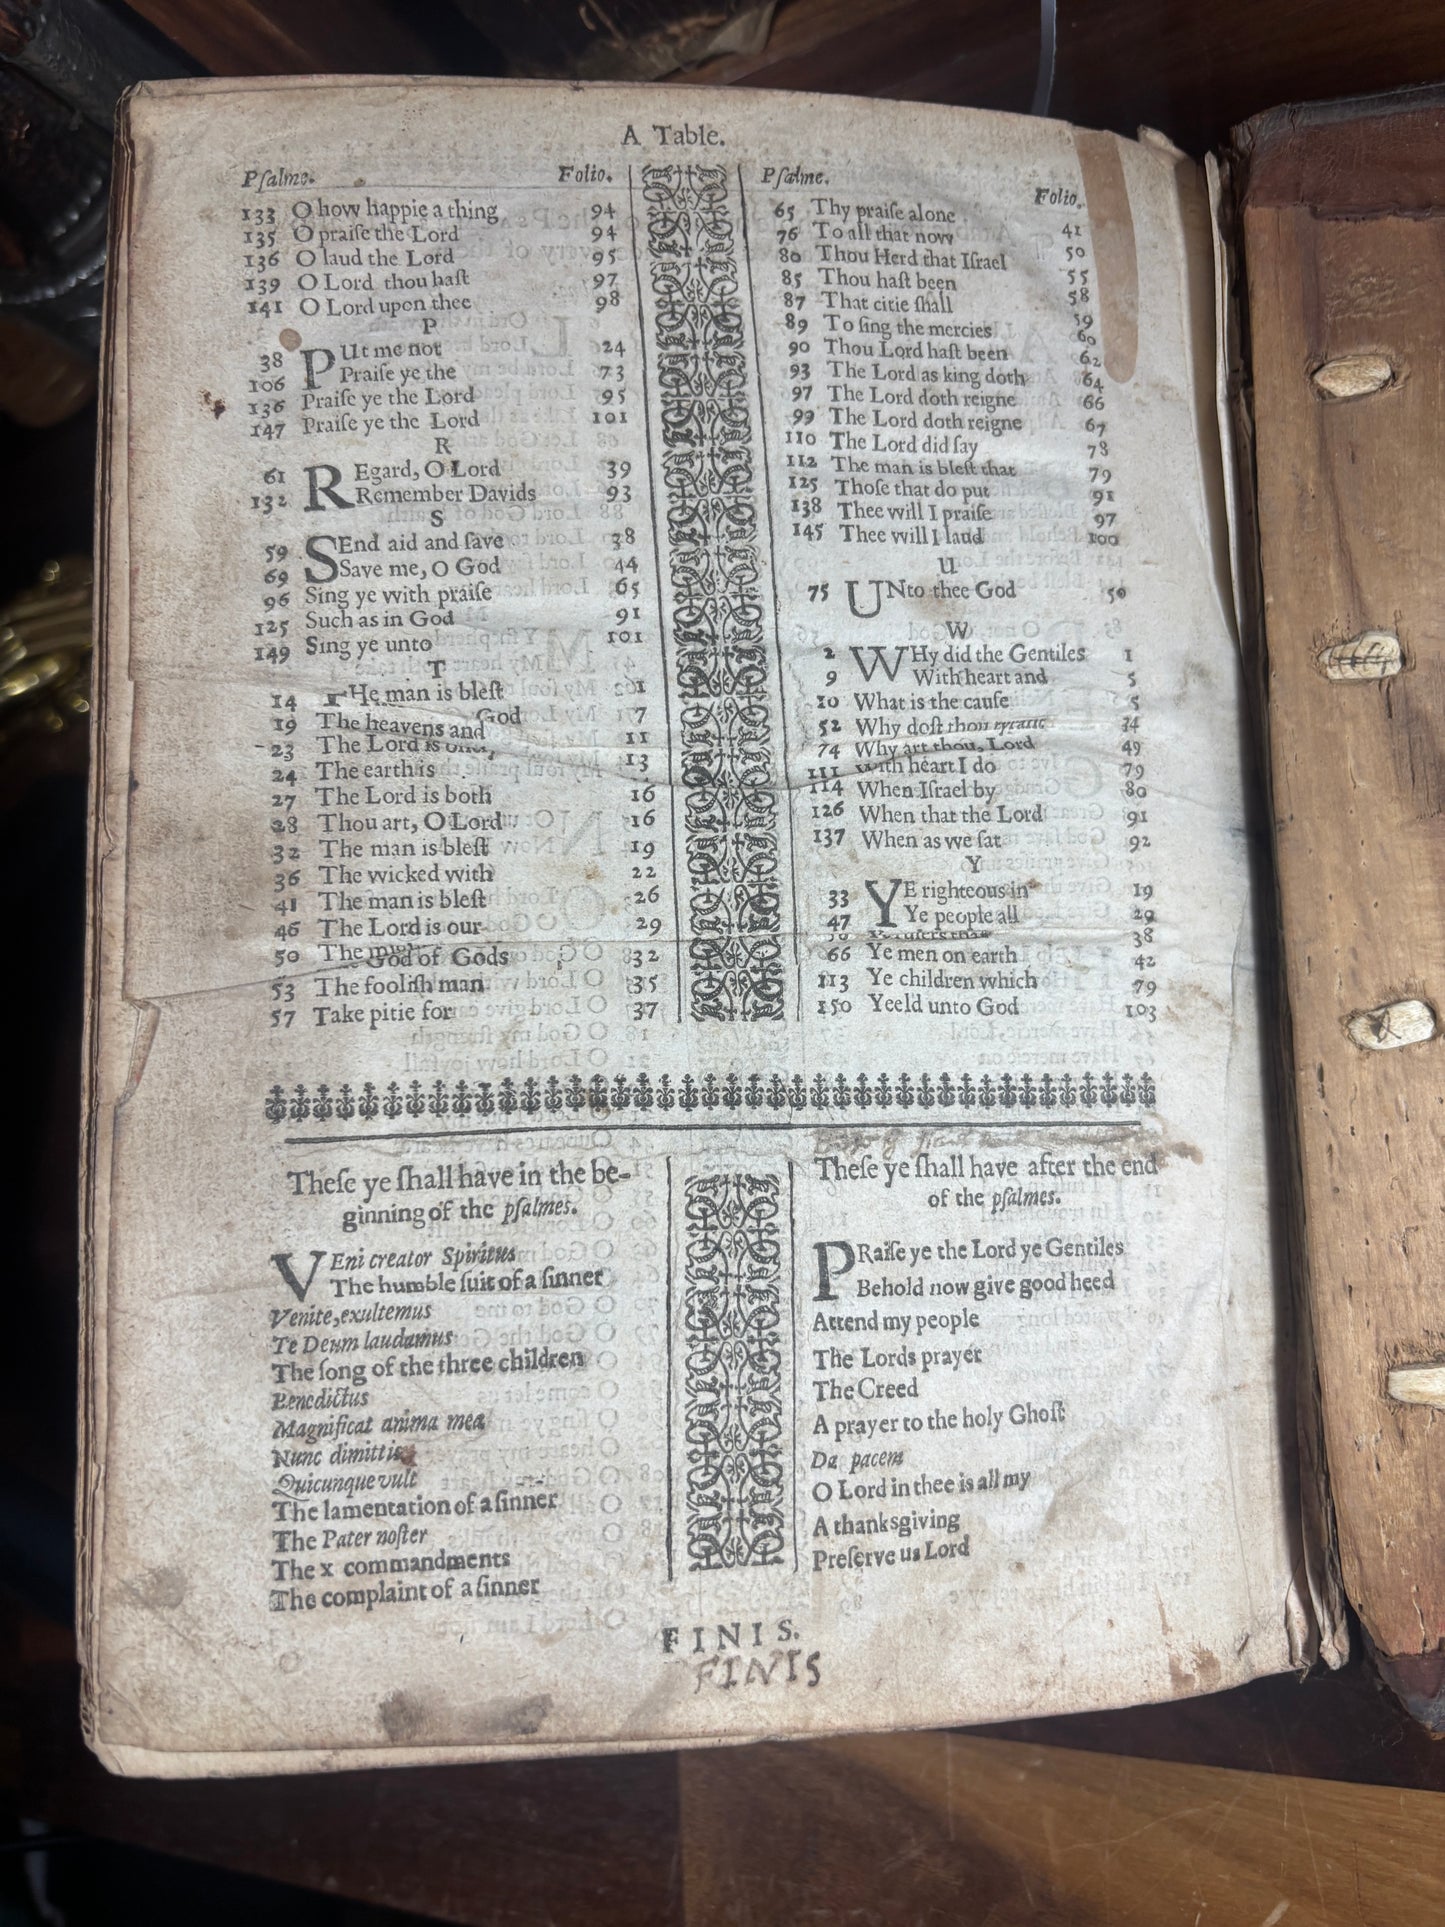 A Table.
Pſalme. Folio.
133 O how happie a thing 94
135 O praiſe the Lord 94
136 O laud the Lord 95
139 O Lord thou haſt 97
141 O Lord upon thee 98
P
38 PUt me not 24
106 Praiſe ye the 73
136 Praiſe ye the Lord 95
147 Praiſe ye the Lord 101
R
61 REgard, O Lord 39
132 Remember Davids 93
S
59 SEnd aid and ſave 38
69 Save me, O God 44
96 Sing ye with praiſe 65
125 Such as in God 91
149 Sing ye unto 101
T
14 THe man is bleſt
19 The heavens and God 7
23 The Lord is only 11
24 The earth is 13
27 The Lord is both 16
28 Thou art, O Lord 16
32 The man is bleſt 19
36 The wicked with 22
41 The man is bleſt 26
46 The Lord is our 29
50 The God of Gods 32
53 The fooliſh man 35
57 Take pitie for 37
Pſalme. Folio.
65 Thy praiſe alone 41
76 To all that now 50
80 Thou Herd that Iſrael 55
85 Thou haſt been 58
87 That citie ſhall 59
89 To ſing the mercies 60
90 Thou Lord haſt been 62
93 The Lord as king doth 64
97 The Lord doth reigne 66
99 The Lord doth reigne 67
110 The Lord did ſay 78
112 The man is bleſt that 79
125 Thoſe that do put 91
138 Thee will I praiſe 97
145 Thee will I laud 100
U
75 UNto thee God 50
W
2 WHy did the Gentiles 1
9 With heart and 5
10 What is the cauſe 5
52 Why doſt thou 34
74 Why art thou, Lord 49
111 With heart I do 79
114 When Iſrael by 80
126 When that the Lord 91
137 When as we ſat 92
Y
33 YE righteous in 19
47 Ye people all 29
38
66 Ye men on earth 42
113 Ye children which 79
150 Yeeld unto God 103
Theſe ye ſhall have in the be-
ginning of the pſalmes.
VEni creator Spiritus
The humble ſuit of a ſinner
Venite, exultemus
Te Deum laudamus
The ſong of the three children
Benedictus
Magnificat anima mea
Nunc dimittis
Quicunque vult
The lamentation of a ſinner
The Pater noſter
The x commandments
The complaint of a ſinner
Theſe ye ſhall have after the end
of the pſalmes.
PRaiſe ye the Lord ye Gentiles
Behold now give good heed
Attend my people
The Lords prayer
The Creed
A prayer to the holy Ghoſt
Da pacem
O Lord in thee is all my
A thanksgiving
Preſerve us Lord
FINIS.
FINIS